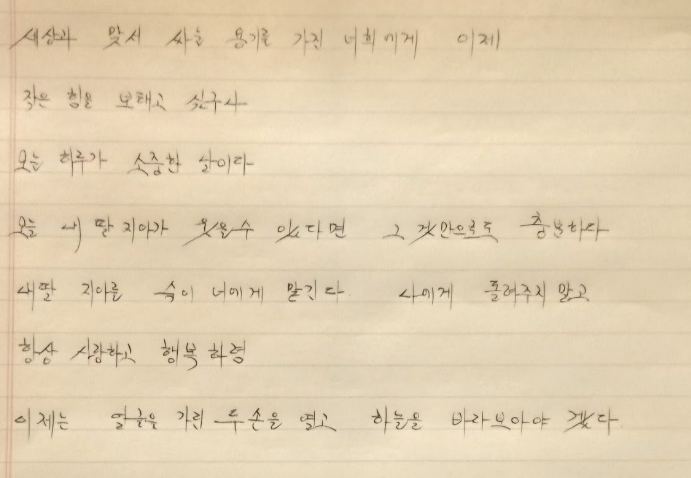 세상과 맞서 싸울 용기를 가진 너희에게 이제
작은 힘을 보태고 싶구나
오늘 하루가 소중한 날이다
오늘 내 딸 지아가 웃을수 있다면 그 것만으로도 충분하다
내딸 지아를 숙이 너에게 맡긴다. 나에게 돌려주지 말고
항상 사랑하고 행복 하렴
이제는 얼굴을 가린 두 손을 열고 하늘을 바라보아야 겠다.